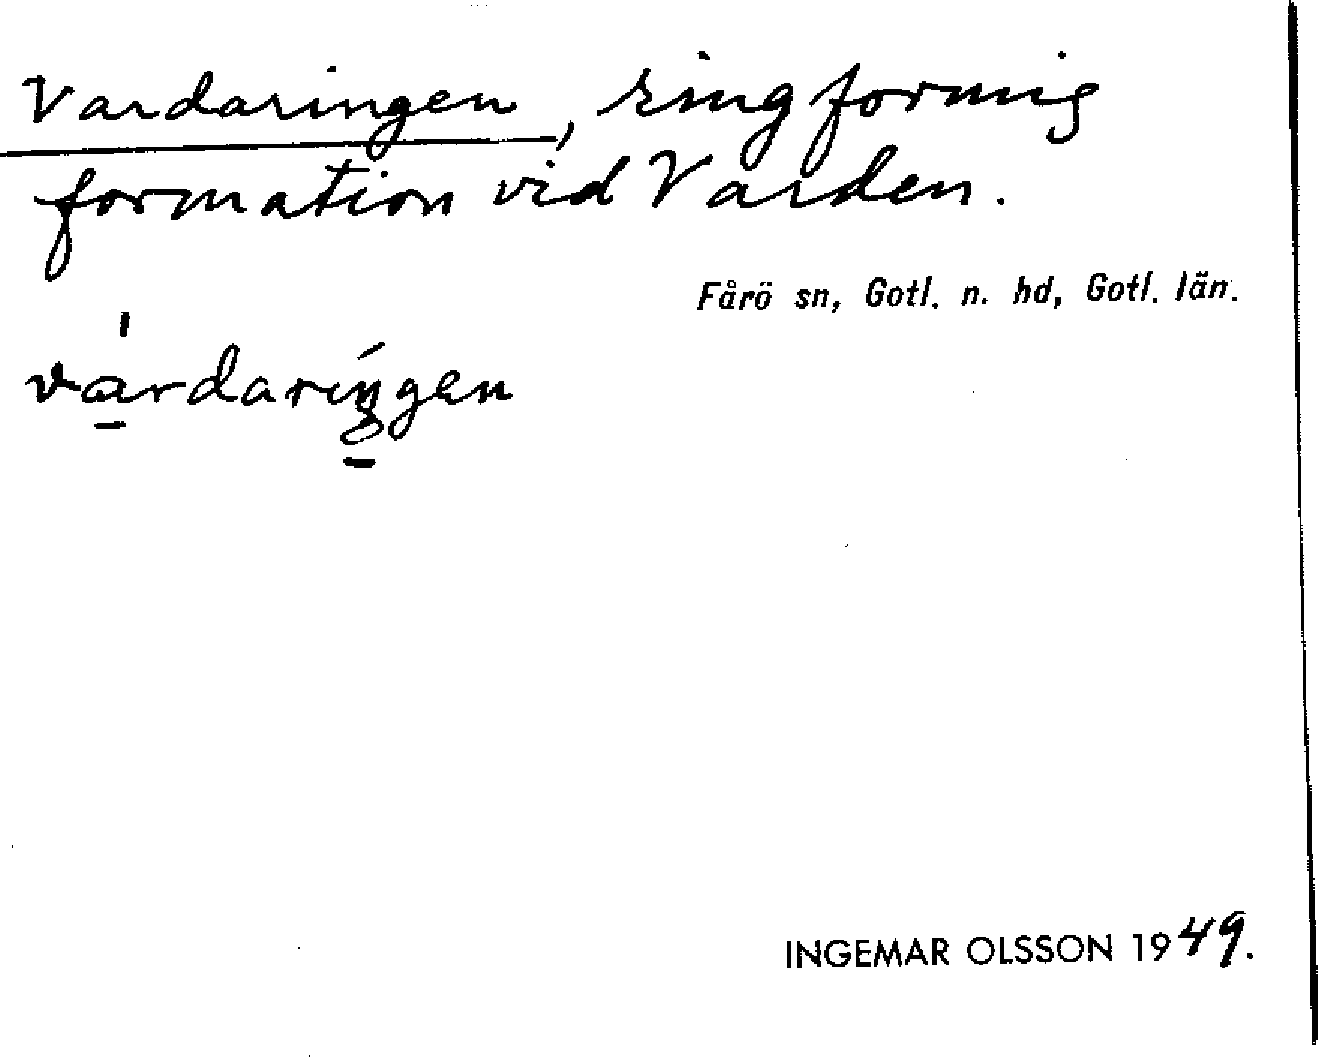 Vardaringen, ringformig
formation vid Varden.
Fårö sn, Gotl. n. hd, Gotl. län.
INGEMAR OLSSON 1949.